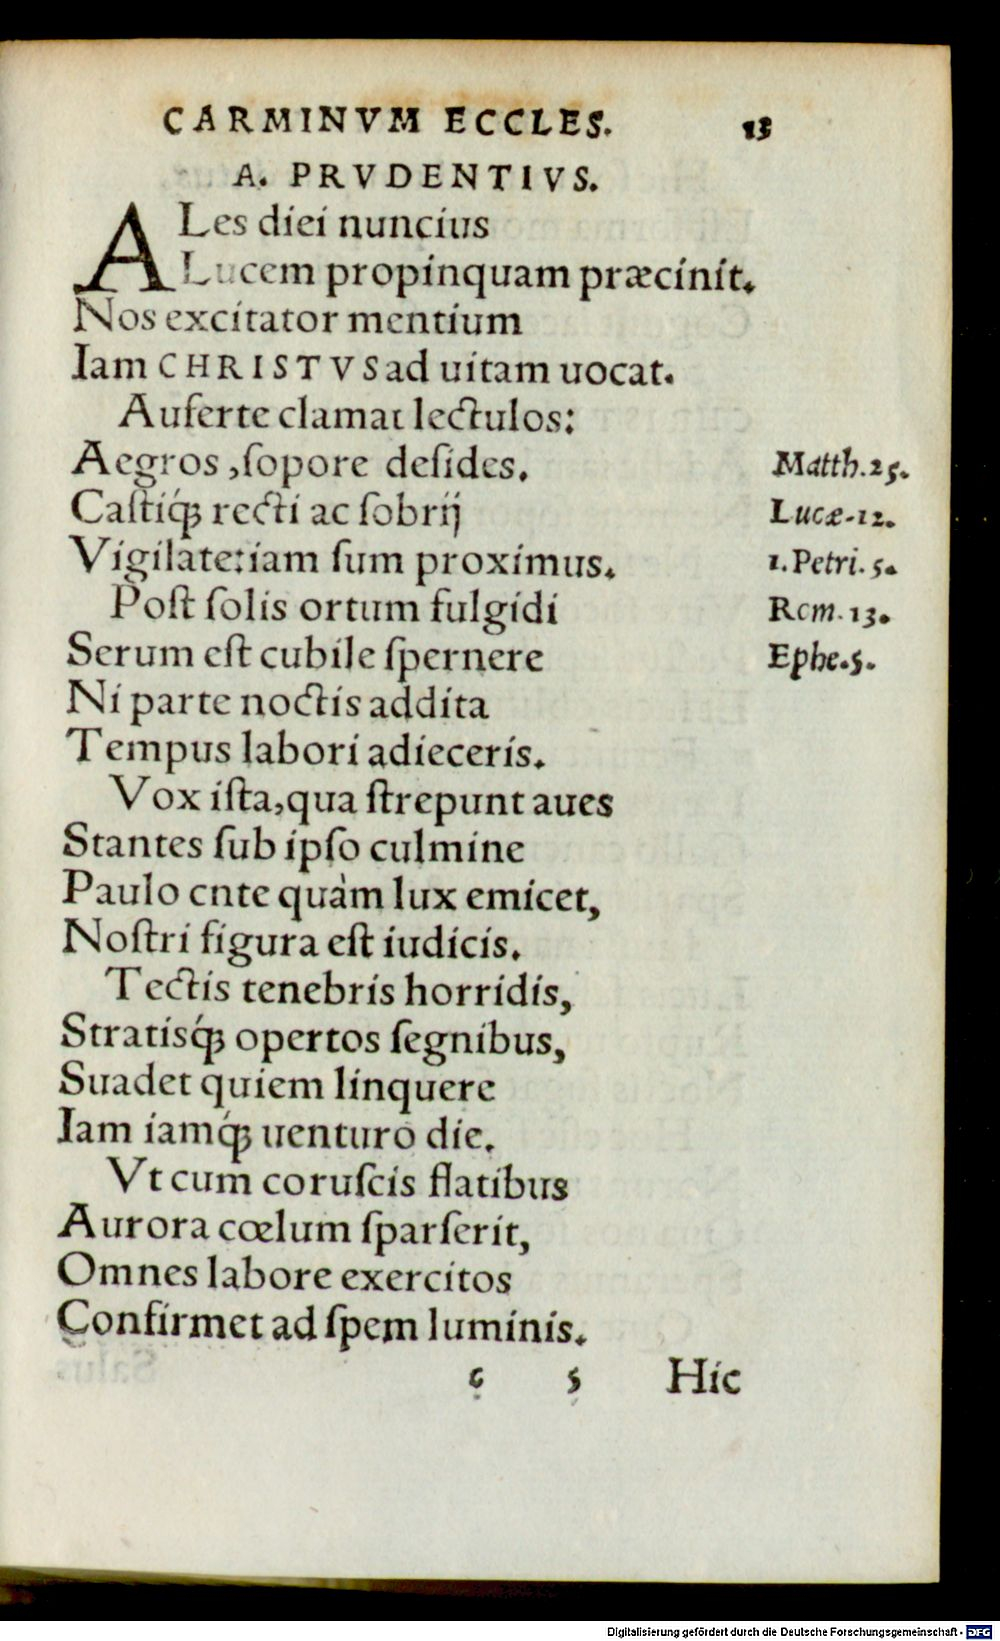 CARMINVM ECCLES. 13
A. PRVDENTIVS.
ALes diei nuncius
Lucem propinquam præcinit.
Nos excitator mentium
Iam CHRISTVS ad uitam uocat.
Auferte clamat lectulos:
Aegros, ſopore deſides. Matth. 25.
Caſtiq́ꝫ recti ac ſobrij Lucæ. 12.
Vigilate: iam ſum proximus. 1. Petri. 5.
Poſt ſolis ortum fulgidi Rom. 13.
Serum eſt cubile ſpernere Ephe. 5.
Ni parte noctis addita
Tempus labori adieceris.
Vox iſta, qua ſtrepunt aues
Stantes ſub ipſo culmine
Paulo cnte quàm lux emicet,
Noſtri figura eſt iudicis.
Tectis tenebris horridis,
Stratisq́ꝫ opertos ſegnibus,
Suadet quiem linquere
Iam iamq́ꝫ uenturo die.
Vt cum coruſcis flatibus
Aurora cœlum ſparſerit,
Omnes labore exercitos
Confirmet ad ſpem luminis.
c 5 Hic
Digitalisierung gefördert durch die Deutsche Forschungsgemeinschaft - DFG